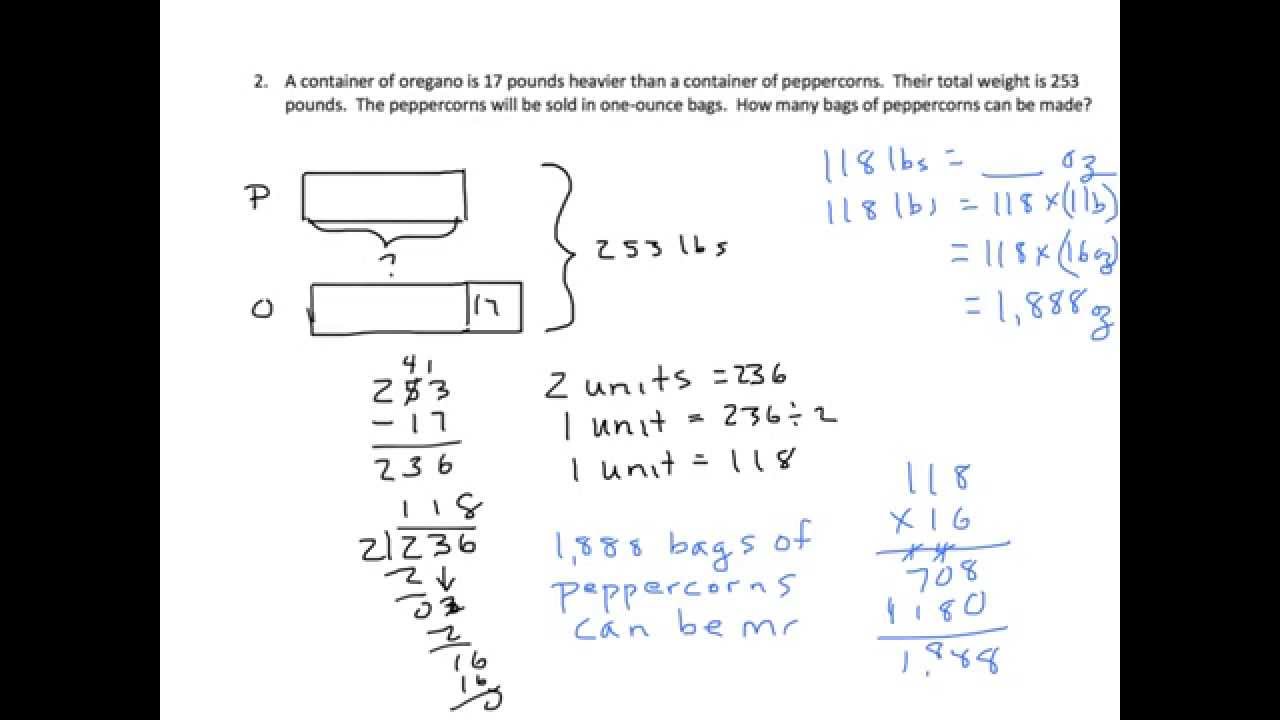 2. A container of oregano is 17 pounds heavier than a container of peppercorns. Their total weight is 253
pounds. The peppercorns will be sold in one-ounce bags. How many bags of peppercorns can be made?
118 lbs = ___ oz
118 lbs = 118 x (1 lb)
= 118 x (16 oz)
= 1,888 oz
P
?
253 lbs
O
17
4 1
253
- 17
236
2 units = 236
1 unit = 236 ÷ 2
1 unit = 118
118
2 236
2
03
2
16
16
0
1,888 bags of
peppercorns
can be mr
118
x 16
708
1180
1,888